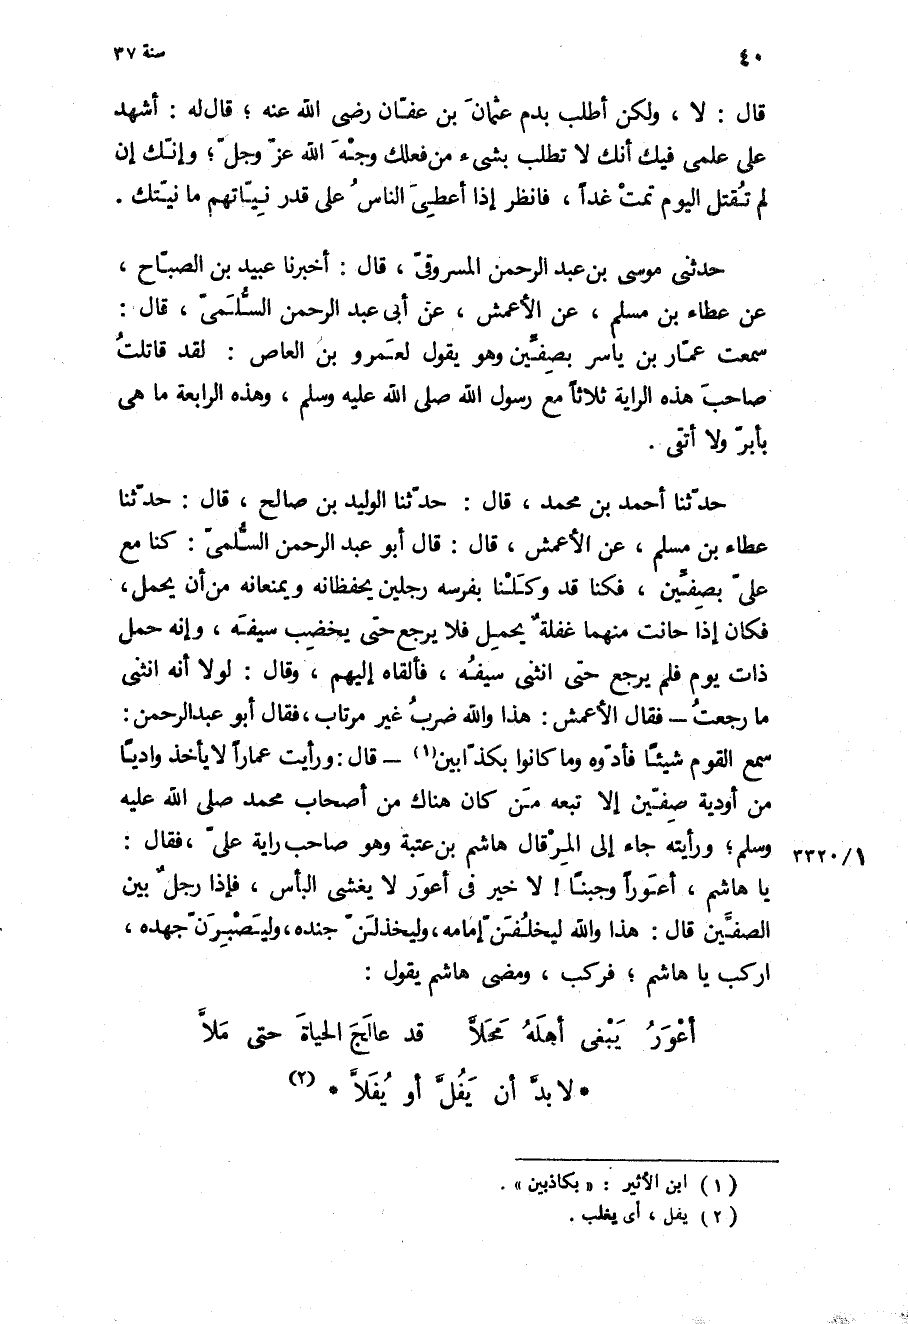 ٤٠
سنة ٣٧
قال : لا ، ولكن أطلب بدم عثمانَ بن عفّان رضى الله عنه ؛ قال له : أشهد
على علمى فيك أنك لا تطلب بشىء من فعلك وجْهَ الله عزّ وجلّ ؛ وإنّك إن
لم تُقتل اليوم تمتْ غداً ، فانظر إذا أعطِىَ الناسُ على قدر نِيّاتهم ما نيّتك .
حدثنى موسى بن عبد الرحمن المسروقىّ ، قال : أخبرنا عبيد بن الصبّاح ،
عن عطاء بن مسلم ، عن الأعمش ، عن أبى عبد الرحمن السُّلَمىّ ، قال :
سمعت عمّار بن ياسر بصِفِّين وهو يقول لعَمرو بن العاص : لقد قاتلتُ
صاحبَ هذه الراية ثلاثاً مع رسول الله صلى الله عليه وسلم ، وهذه الرابعة ما هى
بأبرّ ولا أتقى .
حدّثنا أحمد بن محمد ، قال : حدّثنا الوليد بن صالح ، قال : حدّثنا
عطاء بن مسلم ، عن الأعمش ، قال : قال أبو عبد الرحمن السُّلمىّ : كنا مع
علىّ بصِفِّين ، فكنا قد وكَلْنا بفرسه رجلين يحفظانه ويمنعانه من أن يحمل ،
فكان إذا حانت منهما غفلةٌ يحمِل فلا يرجع حتى يخضِب سيفَه ، وإنه حمل
ذات يوم فلم يرجع حتى انثنى سيفُه ، فألقاه إليهم ، وقال : لولا أنه انثنى
ما رجعتُ – فقال الأعمش : هذا والله ضربُ غير مرتاب ، فقال أبو عبد الرحمن :
سمع القوم شيئًا فأدّوه وما كانوا بكذّابين(١) – قال : ورأيت عماراً لا يأخذ واديًا
من أودية صِفّين إلا تبعه مَن كان هناك من أصحاب محمد صلى الله عليه
وسلم ؛ ورأيته جاء إلى المِرْقال هاشم بن عتبة وهو صاحب راية علىّ ، فقال :
٣٣٢٠/١
يا هاشم ، أعَوراً وجبنًا ! لا خير فى أعوَر لا يغشى البأس ، فإذا رجلٌ بين
الصفَّين قال : هذا والله ليخلُفَنّ إمامه ، وليخذلَنّ جنده ، وليَصْبِرَنّ جهده ،
اركب يا هاشم ؛ فركب ، ومضى هاشم يقول :
أعْوَرُ يَبْغى أهلَهُ مَحَلاَّ قد عالَجَ الحياةَ حتى مَلاَّ
* لا بدَّ أن يَفُلَّ أو يُفَلاَّ * (٢)
(١) ابن الأثير : « بكاذبين » .
(٢) يفل ، أى يغلب .